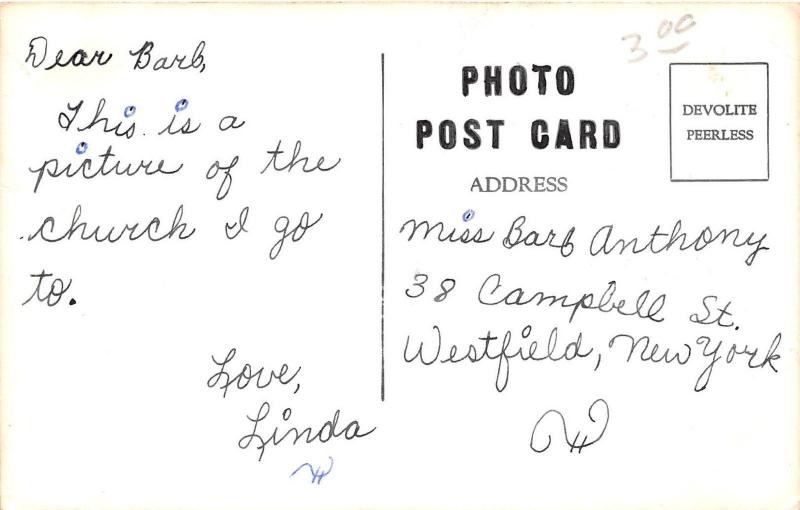 Dear Barb,
This is a
picture of the
church I go
to.
Love,
Linda
3.00
PHOTO
POST CARD
ADDRESS
DEVOLITE
PEERLESS
Miss Barb Anthony
38 Campbell St.
Westfield, New York